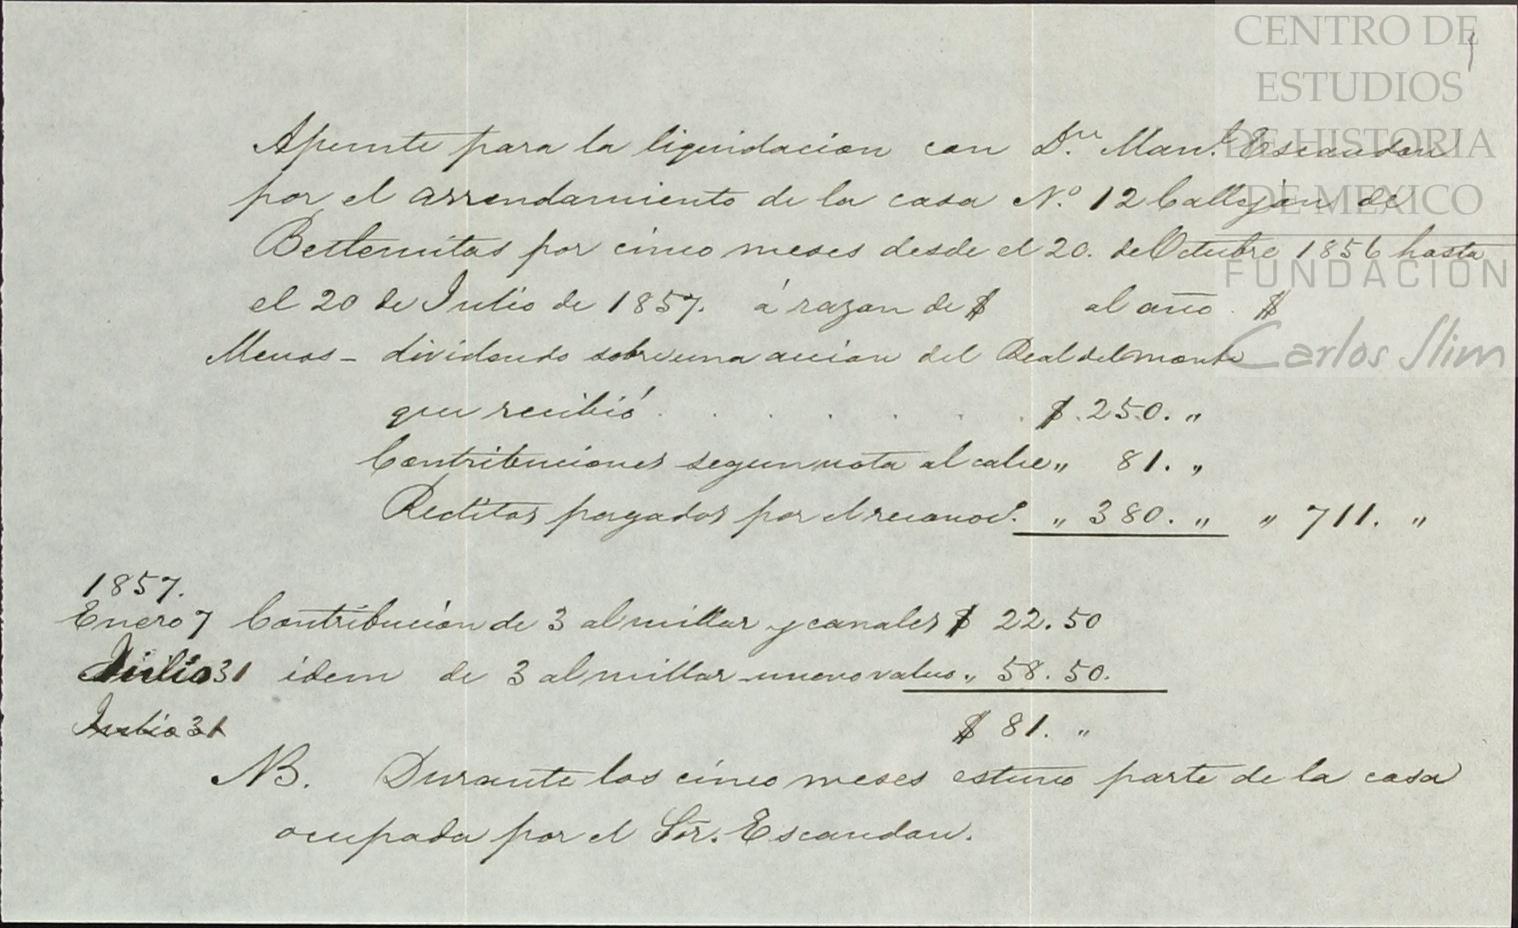 CENTRO DE
ESTUDIOS
DE HISTORIA
DE MEXICO
FUNDACIÓN
Carlos Slim
Apunte para la liquidacion con Dn. Manl. Escandon
por el arrendamiento de la casa No. 12 Callejon de
Betlemitas por cinco meses desde el 20. de Octubre 1856 hasta
el 20 de Julio de 1857. á razon de $ al año $
Menos - dividendo sobre una accion del Real del monte
que recibió . . . . . . . $ 250. "
Contribuciones segun nota al calce " 81. "
Reditos pagados por el reconoc. " 380. " " 711. "
1857.
Enero 7 Contribución de 3 al millar y canales $ 22.50
Julio 31 idem de 3 al millar nuevo valuo " 58.50.
Julio 31
$ 81. "
NB. Durante los cinco meses estuvo parte de la casa
ocupada por el Sor. Escandon.